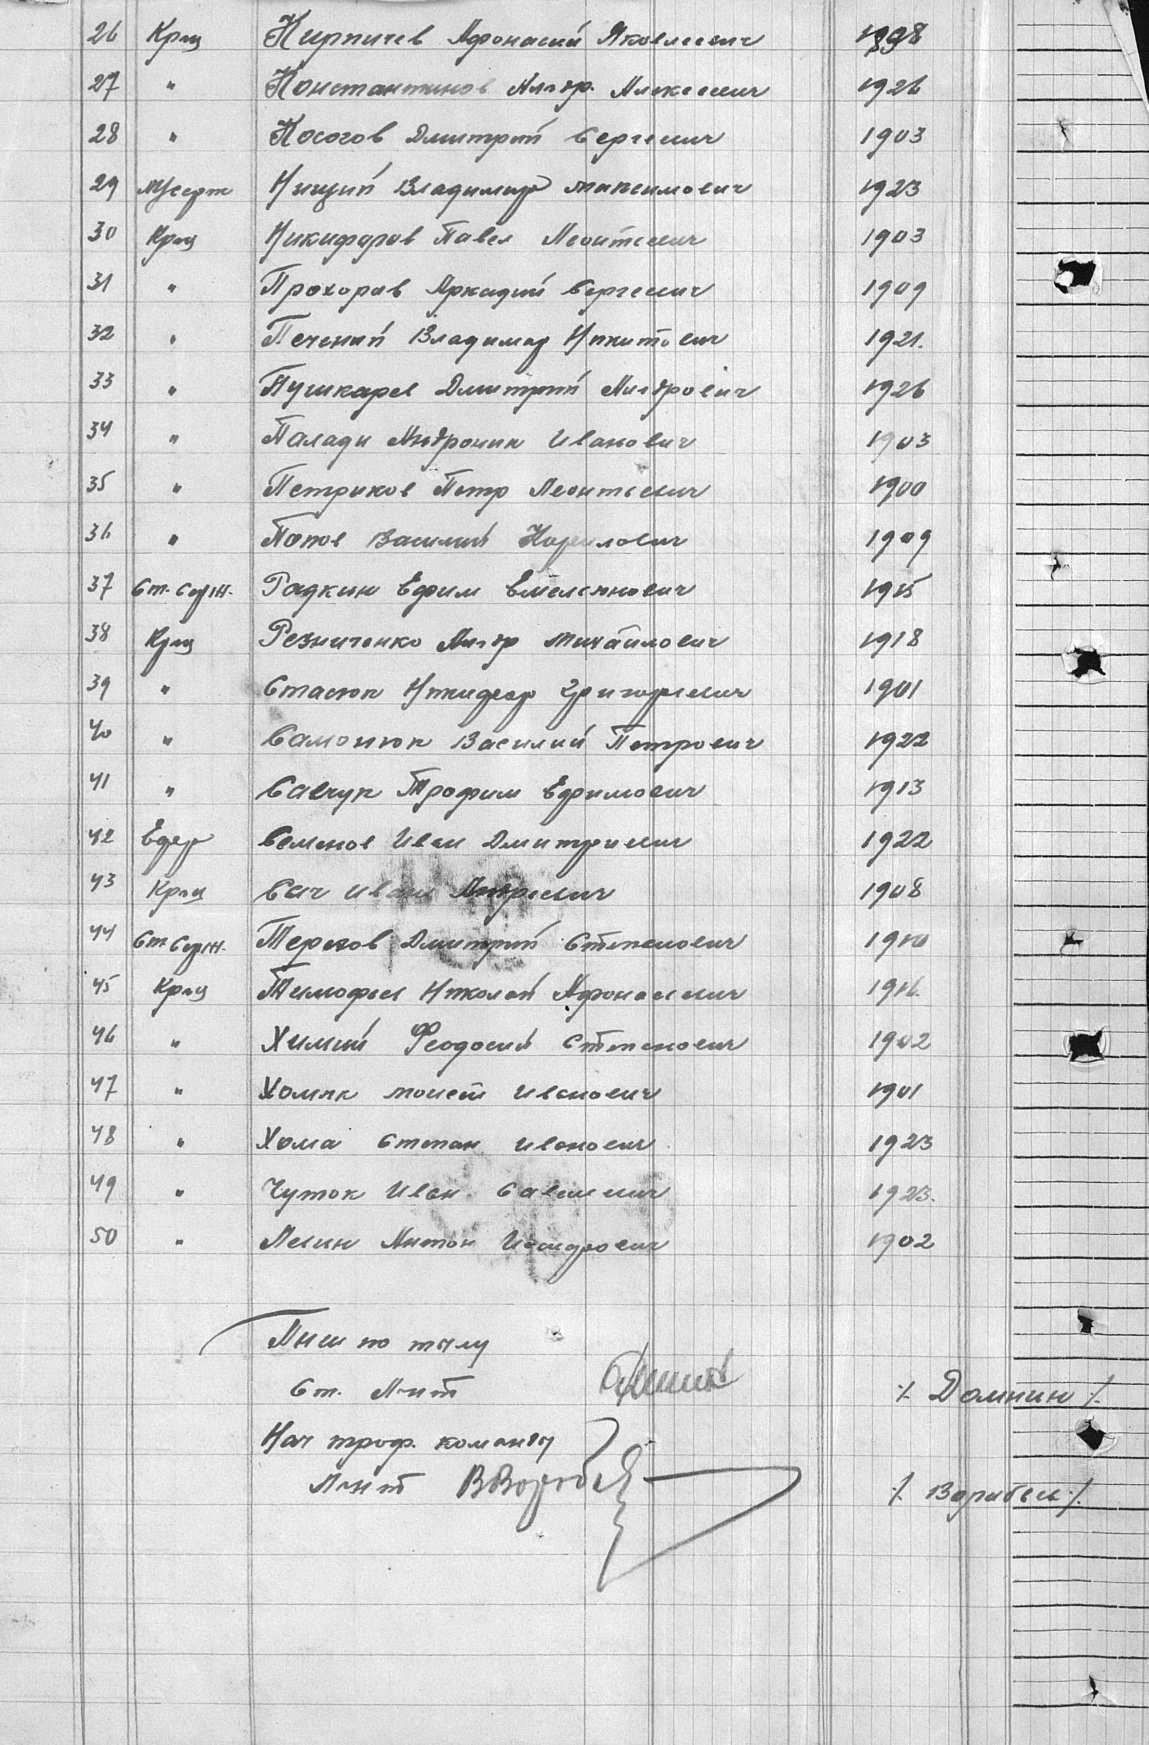 26 Кр-ц Кирпичев Афонасий Яковлевич 1898
27 " Константинов Ал-др. Алексеевич 1926
28 " Косогов Дмитрий Сергеевич 1903
29 Мл Серж Ницый Владимир Максимович 1923
30 Кр-ц Никифоров Павел Леонтьевич 1903
31 " Прохоров Аркадий Сергеевич 1909
32 " Печений Владимир Никитович 1921.
33 " Пушкарев Дмитрий Ал-дрович 1926
34 " Палади Андроник Иванович 1903
35 " Петриков Петр Леонтьевич 1900
36 " Попов Василий Кирилович 1909
37 Ст. Серж. Радкин Ефим Емельянович 1915
38 Кр-ц Резниченко Ал-др Михайлович 1918
39 " Стасюк Никифор Григорьевич 1901
40 " Самонюк Василий Петрович 1922
41 " Савчук Трофим Ефимович 1913
42 Ефр Семенов Иван Дмитриевич 1922
43 Кр-ц Сач Иван Андреевич 1908
44 Ст Серж. Терехов Дмитрий Степанович 1910
45 Кр-ц Тимофеев Николай Афонасьевич 1916.
46 " Химий Феодосий Степанович 1902
47 " Хомяк Моисей Иванович 1901
48 " Хома Степан Иванович 1923
49 " Чуток Иван Савельевич 1923.
50 " Лесин Антон Исидорович 1902
ПНШ по тылу
Ст. Л-нт /. Домнин /.
Нач троф. команды
Л-нт В Воробьев /. Воробьев /.